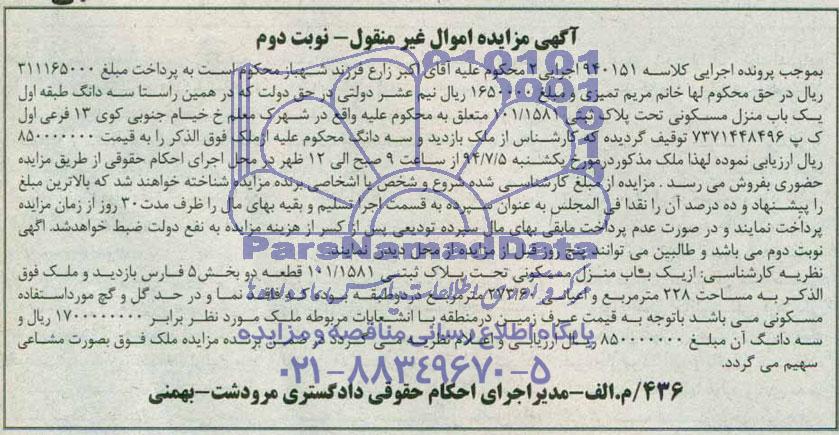 آگهی مزایده اموال غیر منقول- نوبت دوم
بموجب پرونده اجرایی کلاسه ۹۴۰۱۵۱ اجرایی ۲ محکوم علیه آقای اکبر زارع فرزند شهباز محکوم است به پرداخت مبلغ ۳۱۱۱۶۵۰۰۰
ریال در حق محکوم لها خانم مریم تمیزی و مبلغ ۱۶۵۰۰۰۰ ریال نیم عشر دولتی در حق دولت که در همین راستا سه دانگ طبقه اول
یک باب منزل مسکونی تحت پلاک ثبتی ۱۰۱/۱۵۸۱ متعلق به محکوم علیه واقع در شهرک معلم خ خیام جنوبی کوی ۱۳ فرعی اول
ک پ ۷۳۷۱۴۴۸۴۹۶ توقیف گردیده که کارشناس از ملک بازدید و سه دانگ محکوم علیه ازملک فوق الذکر را به قیمت ۸۵۰۰۰۰۰۰۰
ریال ارزیابی نموده لهذا ملک مذکوردرمورخ یکشنبه ۹۴/۷/۵ از ساعت ۹ صبح الی ۱۲ ظهر در محل اجرای احکام حقوقی از طریق مزایده
حضوری بفروش می رسد . مزایده از مبلغ کارشناسی شده شروع و شخص یا اشخاصی برنده مزایده شناخته خواهند شد که بالاترین مبلغ
را پیشنهاد و ده درصد آن را نقدا فی المجلس به عنوان سپرده به قسمت اجرا تسلیم و بقیه بهای مال را ظرف مدت۳۰ روز از زمان مزایده
پرداخت نمایند و در صورت عدم پرداخت مابقی بهای مال سپرده تودیعی پس از کسر از هزینه مزایده به نفع دولت ضبط خواهدشد. اگهی
نوبت دوم می باشد و طالبین می توانند پنج روز قبل از مزایده از محل دیدن نمایند.
نظریه کارشناسی: ازیک باب منزل مسکونی تحت پلاک ثبتی ۱۰۱/۱۵۸۱ قطعه دو بخش۵ فارس بازدید و ملک فوق
الذکر به مساحت ۲۲۸ مترمربع و اعیانی ۲۷۳/۶۰ مترمربع دردوطبقه بوده که فاقد نما و در حد گل و گچ مورداستفاده
مسکونی می باشد باتوجه به قیمت عرف زمین درمنطقه با انشعابات مربوطه ملک مورد نظر برابر ۱۷۰۰۰۰۰۰۰۰ ریال و
سه دانگ آن مبلغ ۸۵۰۰۰۰۰۰۰ ریال ارزیابی و اعلام نظریه می گردد در ضمن برنده مزایده ملک فوق بصورت مشاعی
سهیم می گردد.
۴۳۶/م.الف-مدیراجرای احکام حقوقی دادگستری مرودشت-بهمنی
ParsNamadData
پایگاه اطلاع رسانی مناقصه و مزایده
۰۲۱-۸۸۳۴۹۶۷۰-۵